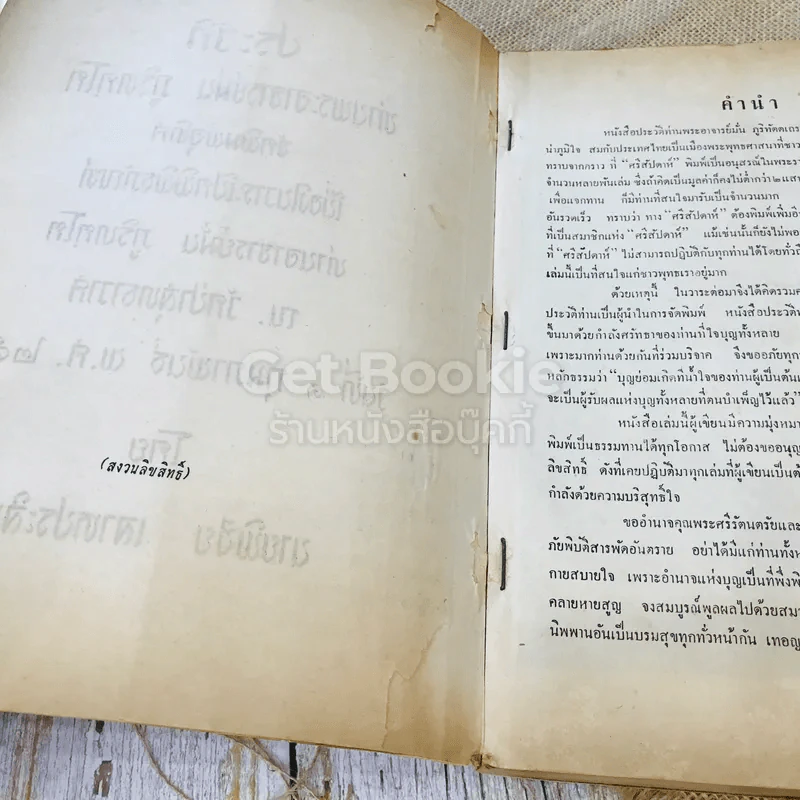 (สงวนลิขสิทธิ์)
Get Bookie
ร้านหนังสือบุ๊คกี้
คำนำ
หนังสือประวัติท่านพระอาจารย์มั่น ภูริทัตตเถร
นำภูมิใจ สมกับประเทศไทยเป็นเมืองพระพุทธศาสนาที่ชาว
ทราบจากคราว ที่ "ศรีสัปดาห์" พิมพ์เป็นอนุสรณ์ในพระรา
จำนวนหลายพันเล่ม ซึ่งถ้าคิดเป็นมูลค่าก็คงไม่ต่ำกว่า๒แสน
เพื่อแจกทาน ก็มีท่านที่สนใจมารับเป็นจำนวนมาก
อันรวดเร็ว ทราบว่า ทาง "ศรีสัปดาห์" ต้องพิมพ์เพิ่มอี
ที่เป็นสมาชิกแห่ง "ศรีสัปดาห์" แม้เช่นนั้นก็ยังไม่พอ
ที่ "ศรีสัปดาห์" ไม่สามารถปฏิบัติกับทุกท่านได้โดยทั่วถึ
เล่มนี้เป็นที่สนใจแก่ชาวพุทธเราอยู่มาก
ด้วยเหตุนี้ ในวาระต่อมาจึงได้คิดรวม
ประวัติท่านเป็นผู้นำในการจัดพิมพ์ หนังสือประวัติท
ขึ้นมาด้วยกำลังศรัทธาของท่านที่ใจบุญทั้งหลาย
เพราะมากท่านด้วยกันที่ร่วมบริจาค จึงขออภัยทุก
หลักธรรมว่า "บุญย่อมเกิดที่น้ำใจของท่านผู้เป็นต้น
จะเป็นผู้รับผลแห่งบุญทั้งหลายที่ตนบำเพ็ญไว้แล้ว"
หนังสือเล่มนี้ผู้เขียนมีความมุ่งหมา
พิมพ์เป็นธรรมทานได้ทุกโอกาส ไม่ต้องขออนุญ
ลิขสิทธิ์ ดังที่เคยปฏิบัติมาทุกเล่มที่ผู้เขียนเป็นต้
กำลังด้วยความบริสุทธิ์ใจ
ขออำนาจคุณพระศรีรัตนตรัยและ
ภัยพิบัติสารพัดอันตราย อย่าได้มีแก่ท่านทั้งห
กายสบายใจ เพราะอำนาจแห่งบุญเป็นที่พึ่งพิ
คลายหายสูญ จงสมบูรณ์พูลผลไปด้วยสมา
นิพพานอันเป็นบรมสุขทุกทั่วหน้ากัน เทอญ